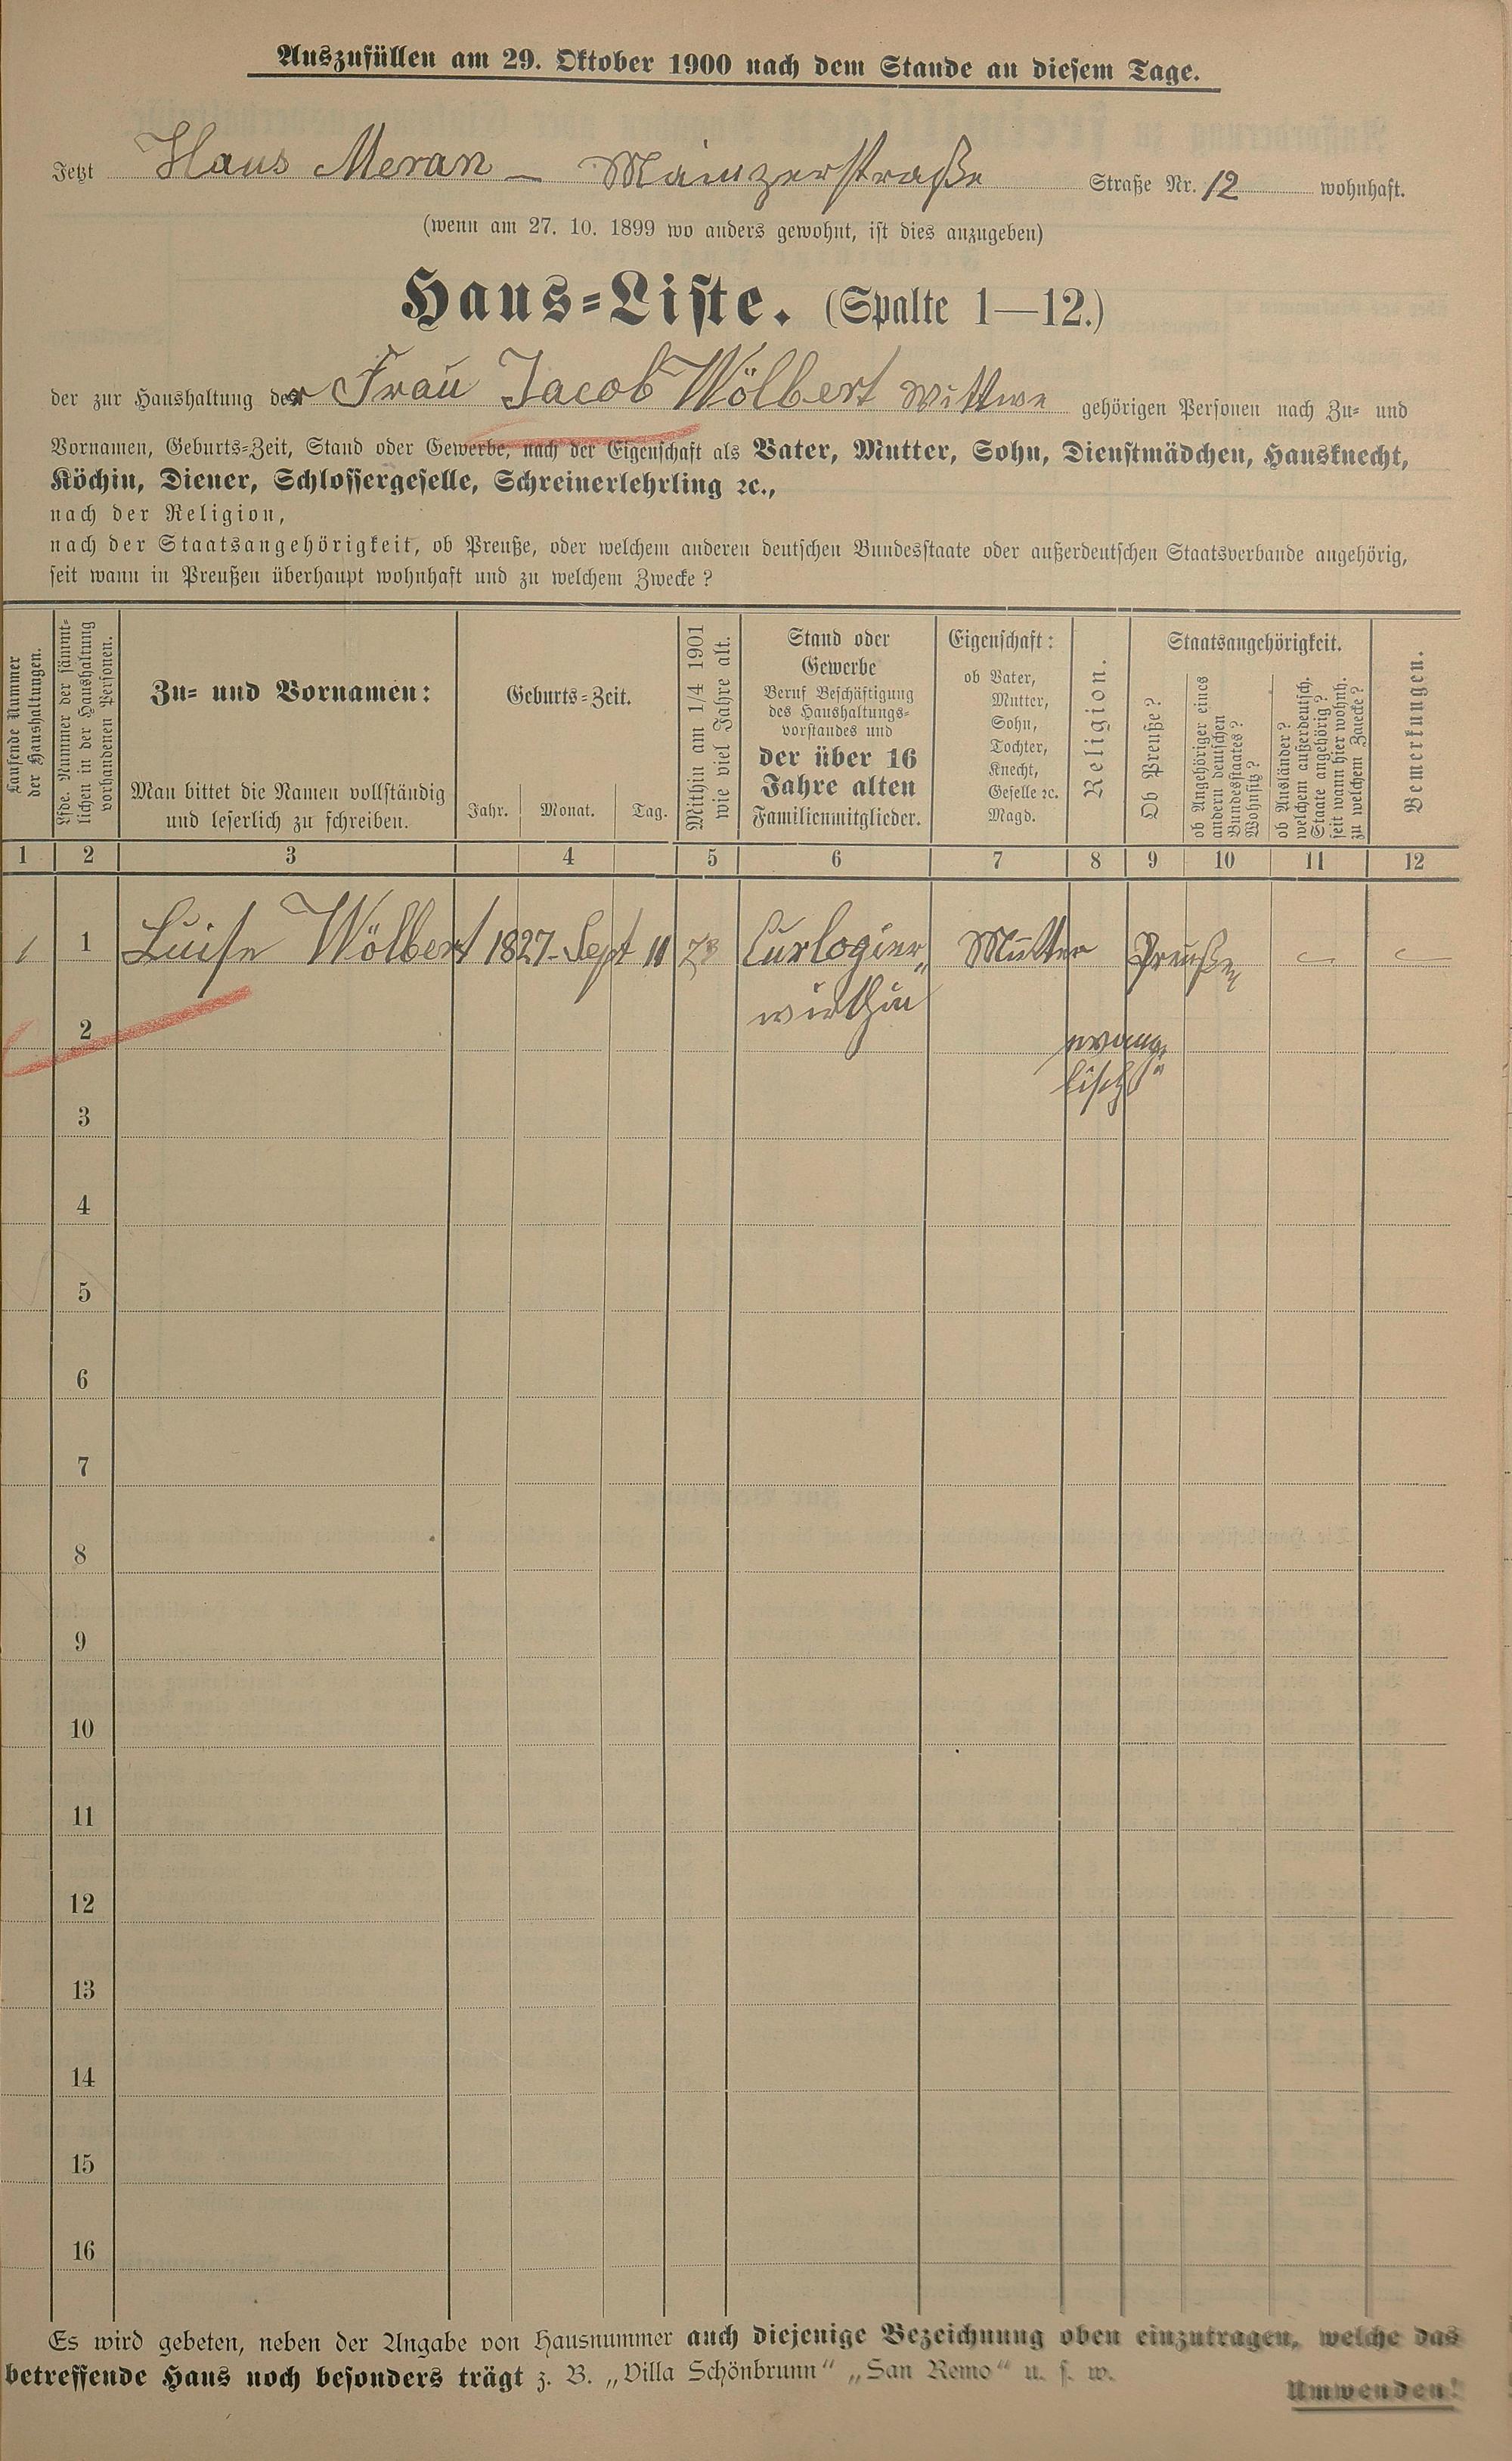 Auszufüllen am 29. Oktober 1900 nach dem Stande an diesem Tage.
Jetzt Haus Meran - Mainzerstraße Straße Nr. 12 wohnhaft.
(wenn am 27. 10. 1899 wo anders gewohnt, ist dies anzugeben)
Haus-Liste. (Spalte 1—12.)
der zur Haushaltung der Frau Jacob Wölbert Wittwe gehörigen Personen nach Zu- und
Vornamen, Geburts-Zeit, Stand oder Gewerbe, nach der Eigenschaft als Vater, Mutter, Sohn, Dienstmädchen, Hausknecht,
Köchin, Diener, Schlossergeselle, Schreinerlehrling ꝛc.,
nach der Religion,
nach der Staatsangehörigkeit, ob Preuße, oder welchem anderen deutschen Bundesstaate oder außerdeutschen Staatsverbande angehörig,
seit wann in Preußen überhaupt wohnhaft und zu welchem Zwecke?
Laufende Nummer
der Haushaltungen.
Lfde. Nummer der sämmt-
lichen in der Haushaltung
vorhandenen Personen.
Zu- und Vornamen:
Man bittet die Namen vollständig
und leserlich zu schreiben.
Geburts-Zeit.
Jahr. Monat. Tag.
Mithin am 1/4 1901
wie viel Jahre alt.
Stand oder
Gewerbe
Beruf Beschäftigung
des Haushaltungs-
vorstandes und
der über 16
Jahre alten
Familienmitglieder.
Eigenschaft:
ob Vater,
Mutter,
Sohn,
Tochter,
Knecht,
Geselle ꝛc.
Magd.
Religion.
Staatsangehörigkeit.
Ob Preuße?
ob Angehöriger eines
andern deutschen
Bundesstaates?
Wohnsitz?
ob Ausländer?
welchem außerdeutsch.
Staate angehörig?
seit wann hier wohnh.
zu welchem Zwecke?
Bemerkungen.
1 2 3 4 5 6 7 8 9 10 11 12
1 1 Luise Wölbert 1827 Sept 11 73 Curlogier„ Mutter Preuße
wirthin
2
evange
lisch
3
4
5
6
7
8
9
10
11
12
13
14
15
16
Es wird gebeten, neben der Angabe von Hausnummer auch diejenige Bezeichnung oben einzutragen, welche das
betreffende Haus noch besonders trägt z. B. „Villa Schönbrunn“ „San Remo“ u. s. w.
Umwenden!